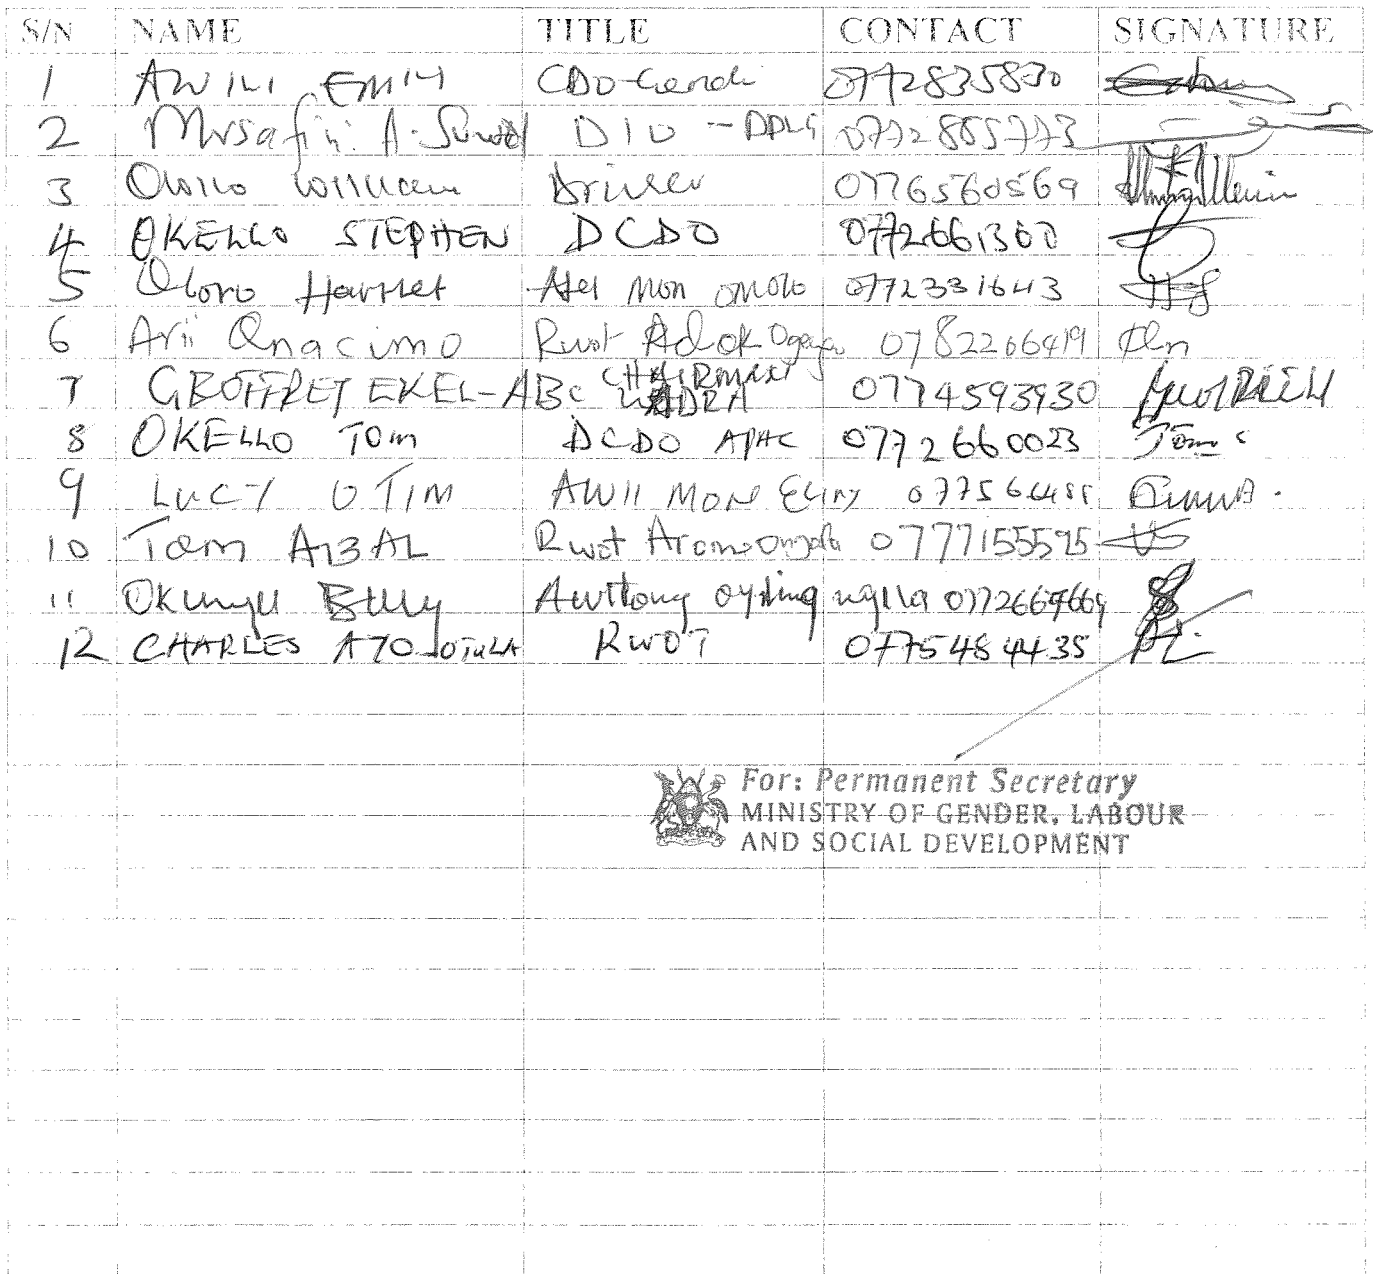 S/N NAME TITLE CONTACT SIGNATURE
1 AWILI EMILY CDO-Gender 0772835830
2 Mrsafiri A. DIO - DPLG 0772855773
3 William Driver 0776560569
4 OKELLO STEPHEN DCDO 0772661360
5 Oloro Harriet Atel Mon Omolo 0772331643
6 Arii Onacimo Rwot Adok Ogayu 0782266419
7 GEOFFREY EKEL-ABC CHAIRMAN 0774593930
8 OKELLO Tom DCDO APAC 0772660023 Tom
9 LUCY OTIM AWII MON 077566485
10 Tom ABAL Rwot Aromo 0777155595
11 Okunyu Billy 0772667669
12 CHARLES AYO OTULA RWOT 0775484435
For: Permanent Secretary
MINISTRY OF GENDER, LABOUR
AND SOCIAL DEVELOPMENT